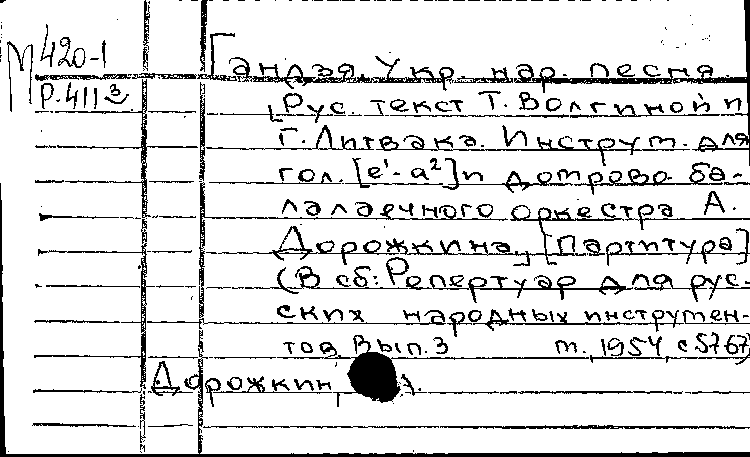 М 420-1
Р.411³
Гандзя. Укр. нар. песня
[Рус. текст Т. Волгиной и
Г. Литвака. Инструм. для
гол. [e¹-a²] и домрово-ба-
лалаечного оркестра А.
Дорожкина.] [Партитура]
(В сб: Репертуар для рус-
ских народных инструмен-
тов. Вып. 3 М., 1954,
Дорожкин,